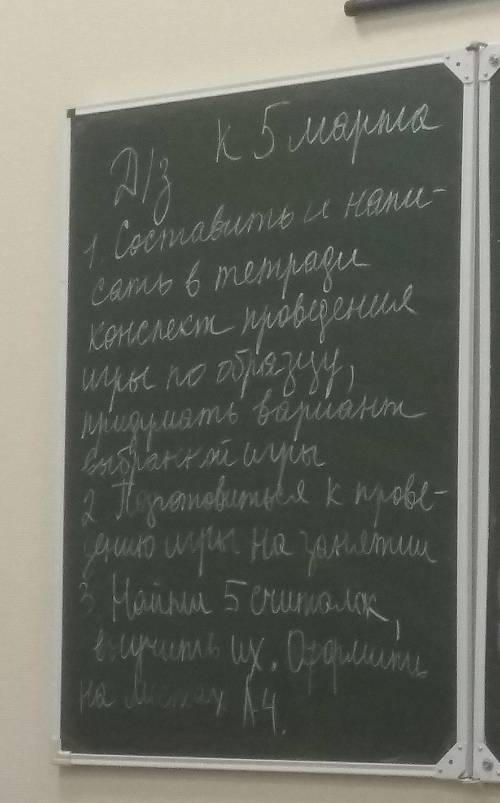 К 5 марта
Д/з
1. Составить и напи-
сать в тетради
конспект проведения
игры по образцу,
придумать вариант
выбранной игры
2 Подготовиться к прове-
дению игры на занятии
3. Найти 5 считалок,
выучить их. Оформить
на листах А4.